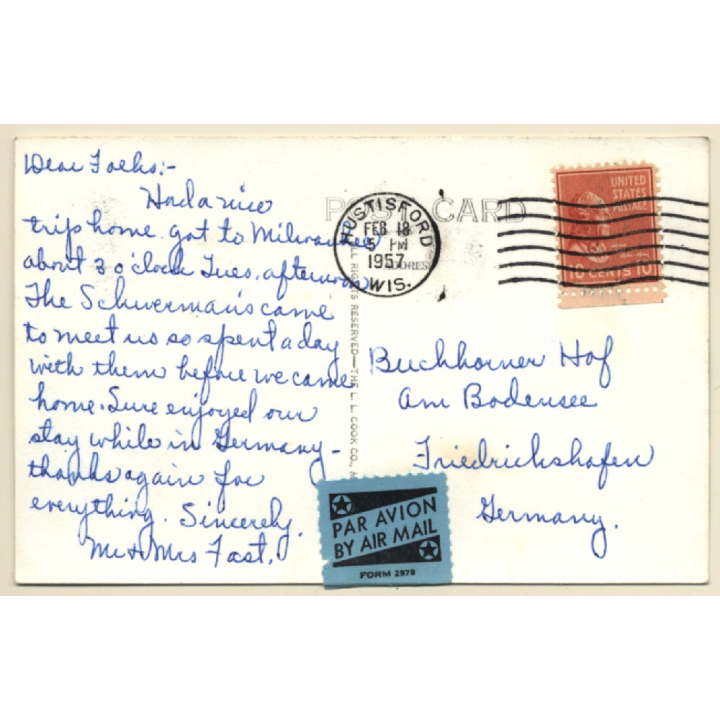 Dear Folks:-
Had a nice
trip home. got to Milwaukee
about 3 o'clock Tues. afternoon
The Schwerman's came
to meet us so spent a day
with them before we came
home. Sure enjoyed our
stay while in Germany -
thanks again for
everything. Sincerely,
Mr + Mrs Fast.
POST CARD
ALL RIGHTS RESERVED—THE L. L. COOK CO.,
HUSTISFORD
FEB 18
5 PM
1957
WIS.
UNITED
STATES
POSTAGE
10 CENTS 10
Buchhorner Hof
Am Bodensee
Friedrichshafen
Germany.
PAR AVION
BY AIR MAIL
FORM 2978